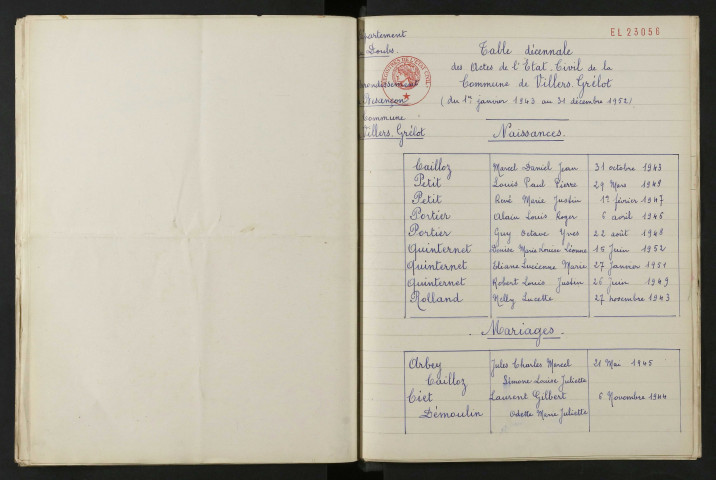 EL 23056
partement
Doubs.
Table décennale
des Actes de l'Etat-Civil de la
Commune de Villers. Grélot
(du 1er janvier 1943 au 31 décembre 1952)
rondissement
Besançon
Commune
Villers. Grélot
Naissances.
Cailloz Marcel Daniel Jean 31 octobre 1943
Petit Louis Paul Pierre 29 Mars 1949
Petit René Marie Justin 1er février 1947
Portier Alain Louis Roger 6 avril 1946
Portier Guy Octave Yves 22 août 1948
Quinternet Denise Marie Louise Léonne 15 Juin 1952
Quinternet Eliane Lucienne Marie 27 Janvier 1951
Quinternet Robert Louis Justin 26 Juin 1949
Rolland Nelly Lucette 27 novembre 1943
Mariages.
Arbey Jules Charles Marcel 21 Mai 1945
Cailloz Simone Louise Juliette
Ciet Laurent Gilbert 6 Novembre 1944
Démoulin Odette Marie Juliette